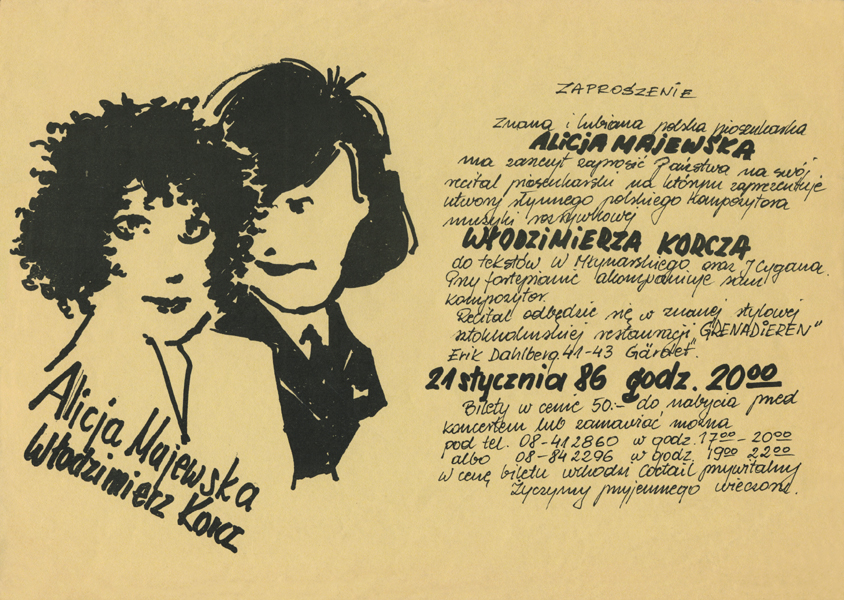 Alicja Majewska
Włodzimierz Korcz
ZAPROSZENIE
Znana i lubiana polska piosenkarka
ALICJA MAJEWSKA
ma zaszczyt zaprosić Państwa na swój
recital piosenkarski na którym zaprezentuje
utwory słynnego polskiego kompozytora
muzyki rozrywkowej
WŁODZIMIERZA KORCZA
do tekstów W Młynarskiego oraz J Cygana.
Przy fortepianie akompaniuje sam
kompozytor.
Recital odbędzie się w znanej stylowej
sztokholmskiej restauracji "GRENADIEREN"
Erik Dahlberg. 41-43 Gärdet.
21 stycznia 86 godz. 20⁰⁰
Bilety w cenie 50:- do nabycia przed
koncertem lub zamawiać można
pod tel. 08-412860 w godz. 17⁰⁰-20⁰⁰
albo 08-842296 w godz. 19⁰⁰ 22⁰⁰
w cenę biletu wchodzi coctail powitalny
Życzymy przyjemnego wieczoru.